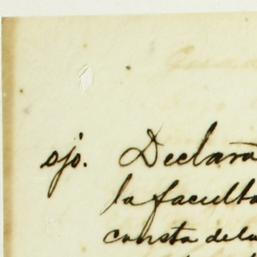 ojo. Declara
la faculta
consta dela